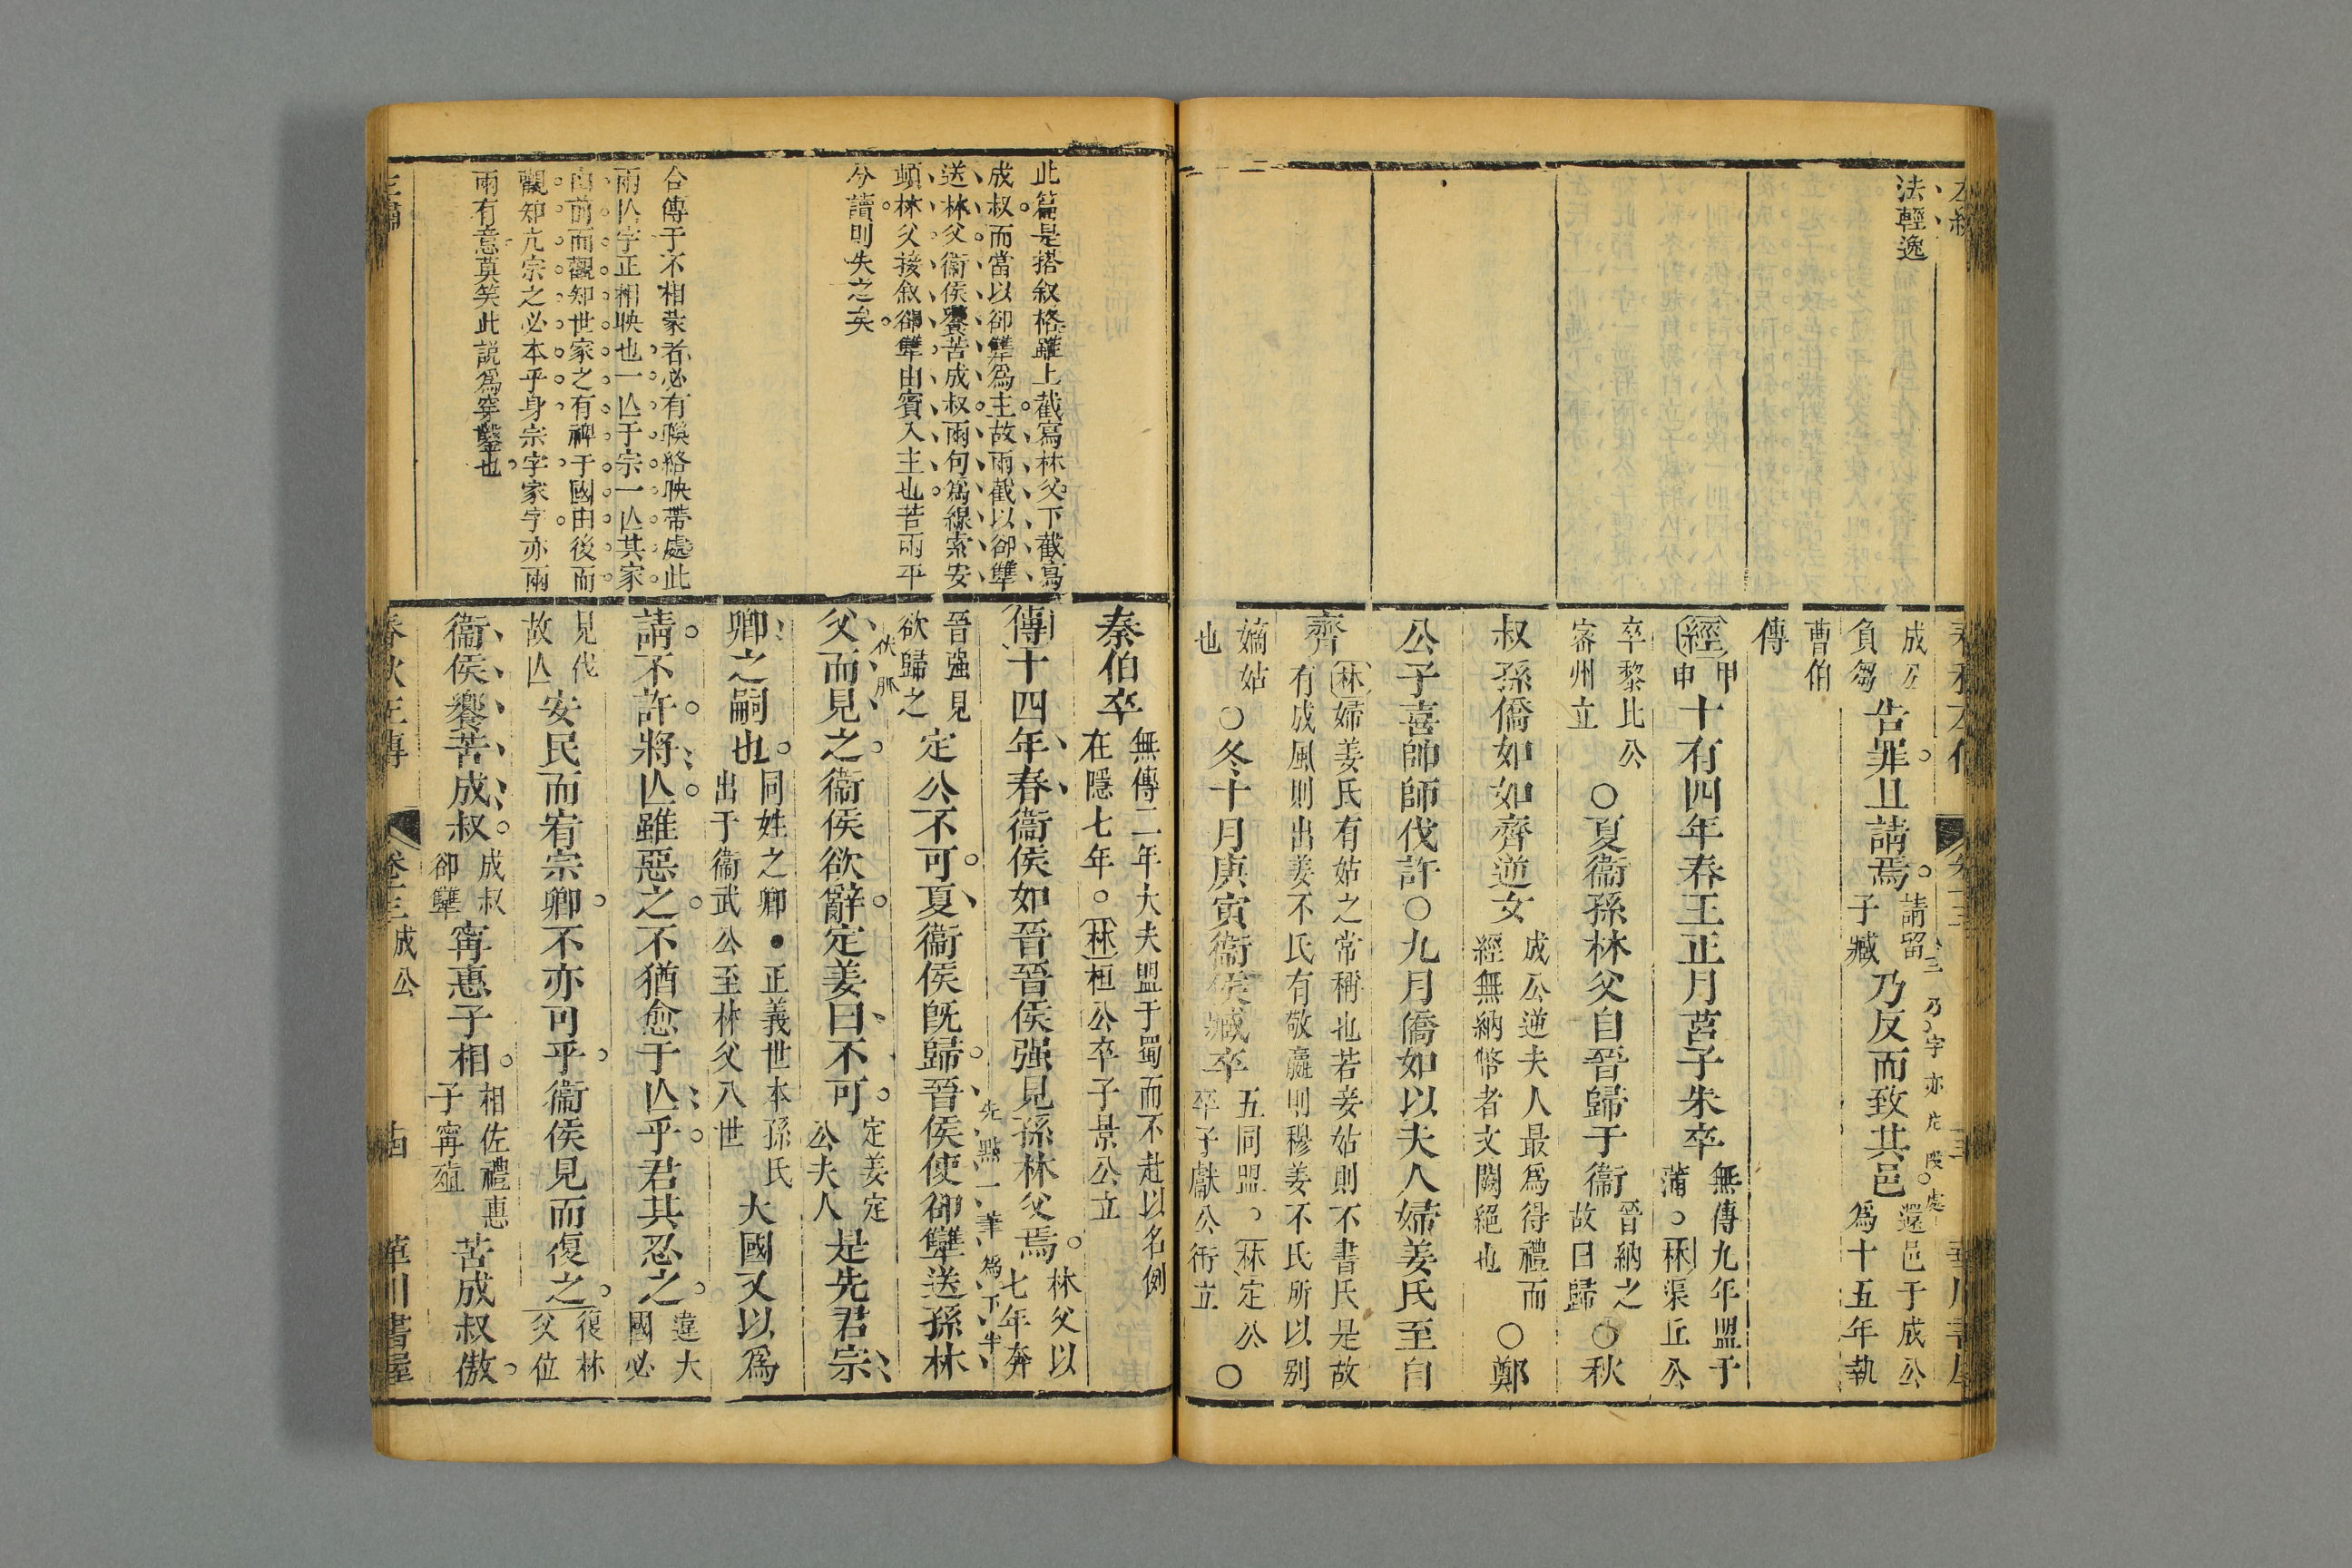 法輕逸
成公
負芻
告罪且請焉
請留
子臧
乃反而致其邑
還邑于成公
爲十五年執
乃字亦左段處
曹伯
傳
經
甲
申
十有四年春王正月莒子朱卒
無傳九年盟于
蒲○林渠丘公
卒黎比公
密州立
○夏衞孫林父自晉歸于衞
晉納之
故曰歸
○秋
叔孫僑如如齊逆女
成公逆夫人最爲得禮而
經無納幣者文闕絕也
○鄭
公子喜帥師伐許○九月僑如以夫人婦姜氏至自
齊
林婦姜氏有姑之常稱也若妾姑則不書氏是故
有成風則出姜不氏有敬嬴則穆姜不氏所以别
嫡姑
也
○冬十月庚寅衞侯臧卒
五同盟○林定公
卒子獻公衎立
○
此篇是搭叙格雖上截寫林父下截寫
成叔而當以卻犫爲主故兩截以卻犫
送林父衞侯饗苦成叔兩句爲線索安
頓林父接叙卻犫由賓入主也若兩平
分讀則失之矣
合傳于不相蒙者必有喚絡映帶處此
兩亾字正相映也一亾于宗一亾其家
由前而觀知世家之有裨于國由後而
觀知亢宗之必本乎身宗字家字亦兩
兩有意莫笑此説爲穿鑿也
秦伯卒
無傳二年大夫盟于蜀而不赴以名例
在隱七年○林桓公卒子景公立
傳十四年春衞侯如晉晉侯强見孫林父焉
林父以
七年奔
晉强見
欲歸之
定公不可夏衞侯旣歸晉侯使卻犫送孫林
先點一筆爲下半
父而見之衞侯欲辭定姜曰不可
伏脈
定姜定
公夫人
是先君宗
卿之嗣也
同姓之卿●正義世本孫氏
出于衞武公至林父八世
大國又以爲
請不許將亾雖惡之不猶愈于亾乎君其忍之
違大
國必
見伐
故亾
安民而宥宗卿不亦可乎衞侯見而復之
復林
父位
衞侯饗苦成叔
成叔
卻犫
甯惠子相
相佐禮惠
子甯殖
苦成叔傲
春秋左傳
卷十三
成公
華川書屋